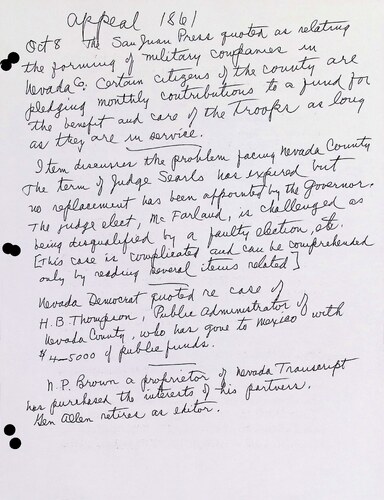 appeal 1861
Oct 8 The San Juan Press quoted as relating
the forming of military companies in
Nevada Co. Certain citizens of the county are
pledging monthly contributions to a fund for
the benefit and care of the Troops as long
as they are in service.
Item discusses the problem facing Nevada County
The term of Judge Searls has expired but
no replacement has been appointed by the Governor.
The judge elect, McFarland, is challenged as
being disqualified by a faulty election, etc.
[This case is complicated and can be comprehended
only by reading several items related]
Nevada Democrat quoted re case of
H.B. Thompson, Public Administrator of
Nevada County, who has gone to Mexico with
$4-5000 of public funds.
N.P. Brown a proprietor of Nevada Transcript
has purchased the interests of his partners.
Gen Allen retires as editor.